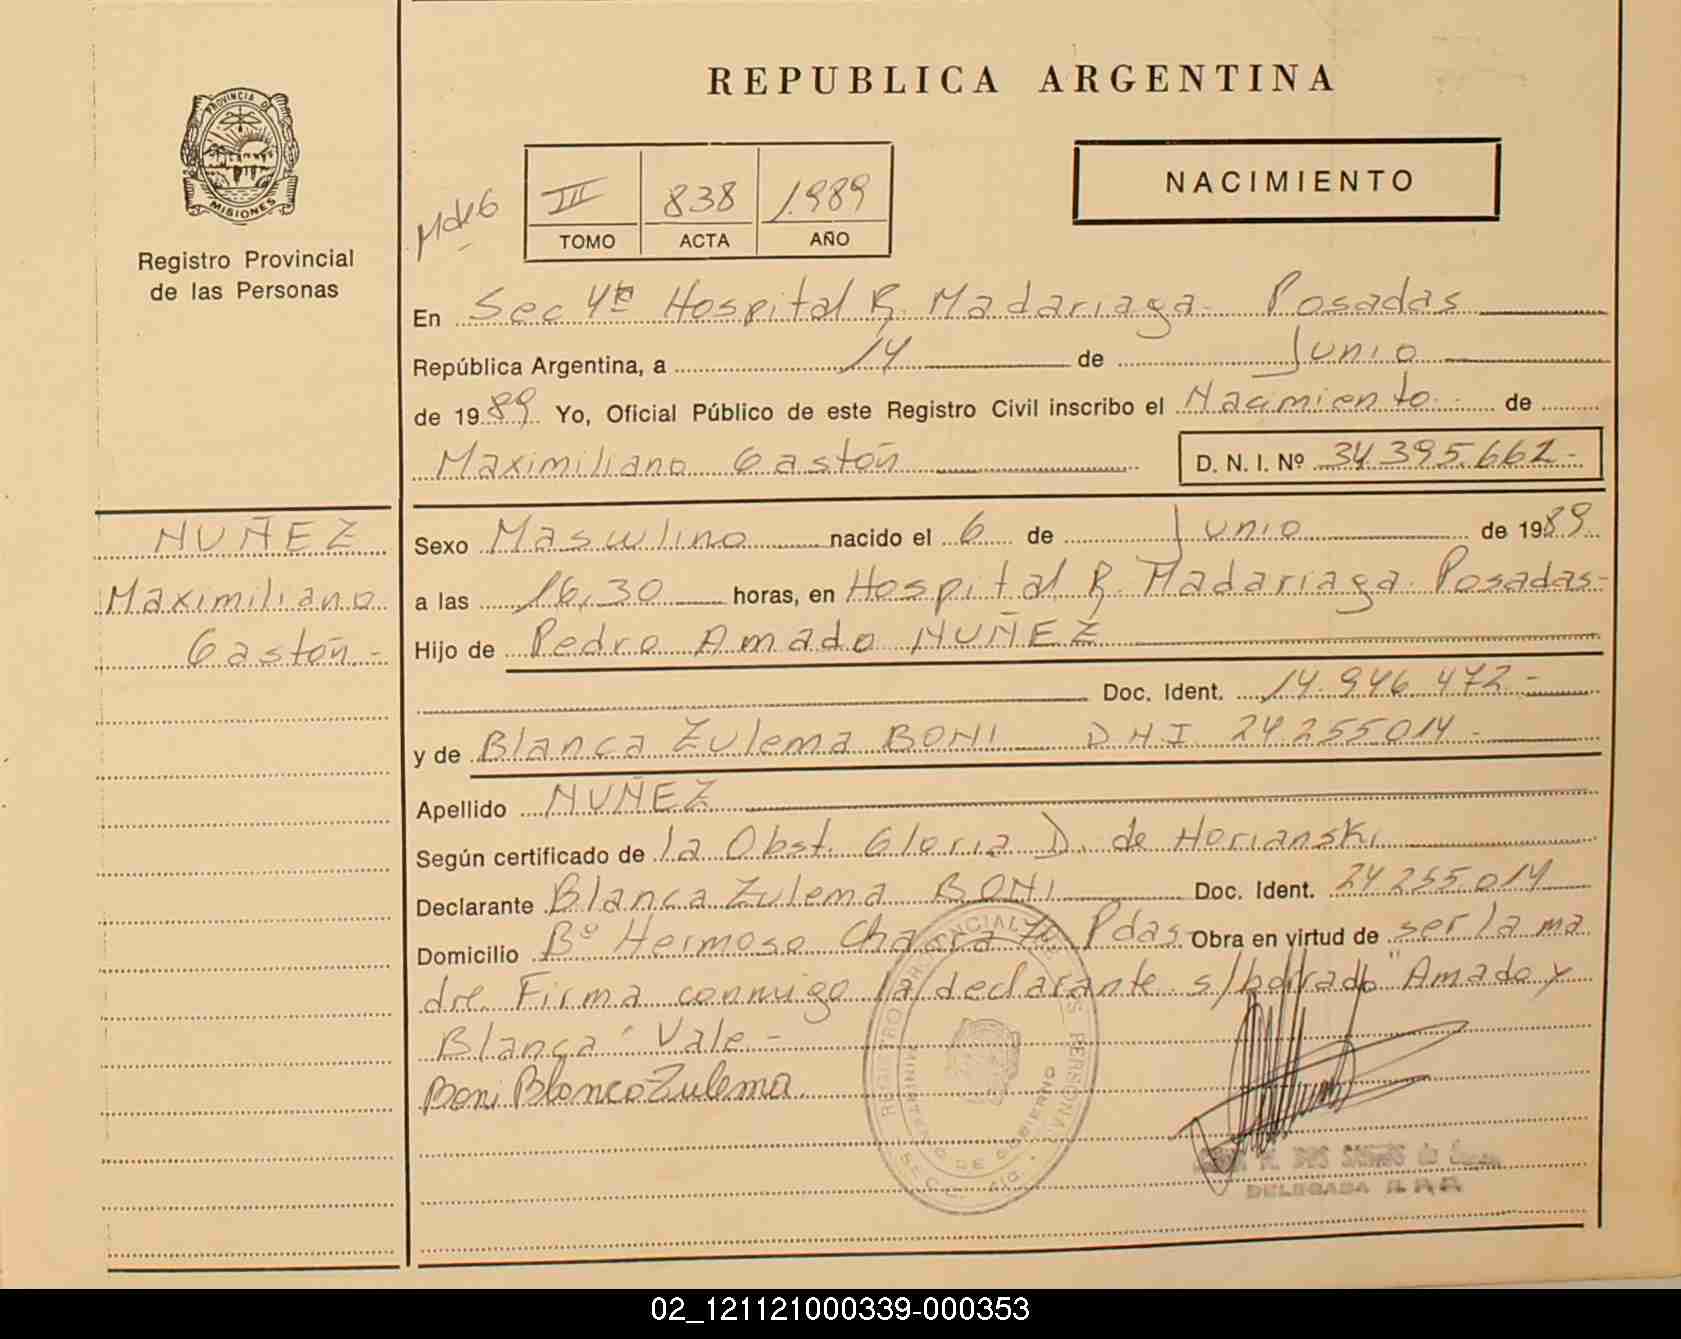 REPUBLICA ARGENTINA
PROVINCIA DE
MISIONES
Registro Provincial
de las Personas
III 838 1989
TOMO ACTA AÑO
NACIMIENTO
En Sec 4ta Hospital R. Madariaga - Posadas
República Argentina, a 14 de Junio
de 1989 Yo, Oficial Público de este Registro Civil inscribo el Nacimiento de
Maximiliano Gastón D. N. I. Nº 34.395.662-
NUÑEZ
Maximiliano
Gastón.-
Sexo Masculino nacido el 6 de Junio de 1989
a las 16,30 horas, en Hospital R. Madariaga. Posadas-
Hijo de Pedro Amado NUÑEZ
Doc. Ident. 14.946.472-
y de Blanca Zulema BONI DNI 24.255014-
Apellido NUÑEZ
Según certificado de la Obst. Gloria D. de Horianski
Declarante Blanca Zulema BONI Doc. Ident. 24255014
Domicilio Bº Hermoso Chacra Pdas Obra en virtud de ser la ma
dre. Firma conmigo la declarante. s/borrado "Amado y
Blanca" Vale-
Boni Blanca Zulema
REGISTRO PROVINCIAL DE LAS PERSONAS
MINISTERIO DE GOBIERNO
DOS SANTOS de
DELEGADA R. P. P.
02_121121000339-000353